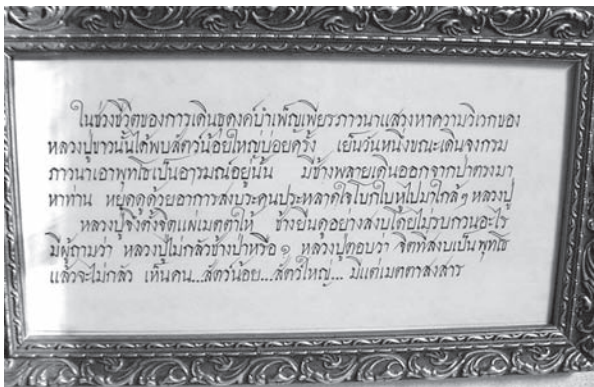 ในช่วงชีวิตของการเดินธุดงค์บำเพ็ญเพียรภาวนาแสวงหาความวิเวกของ
หลวงปู่ขาวนั้นได้พบสัตว์น้อยใหญ่บ่อยครั้ง เย็นวันหนึ่งขณะเดินจงกรม
ภาวนาเอาพุทโธเป็นอารมณ์อยู่นั้น มีช้างพลายเดินออกจากป่าตรงมา
หาท่าน หยุดดูด้วยอาการสงบระคนประหลาดใจโบกใบหูไปมาใกล้ๆ หลวงปู่
หลวงปู่จึงตั้งจิตแผ่เมตตาให้ ช้างยืนดูอย่างสงบโดยไม่รบกวนอะไร
มีผู้ถามว่า หลวงปู่ไม่กลัวช้างป่าหรือ ๑ หลวงปู่ตอบว่า จิตที่สงบเป็นพุทโธ
แล้วจะไม่กลัว เห็นคน...สัตว์น้อย...สัตว์ใหญ่... มีแต่เมตตาสงสาร